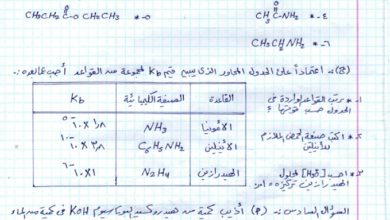 CH₃CH₂C̈OCH₂CH₃ *-٥
CH₃C̈-NH₂ *-٤
CH₃CH NH₂ *-٦
(ج): اعتماداً على الجدول المجاور الذي يبين قيم Kb لمجموعة من القواعد أجب عما يلي:
القاعدة الصيغة الكيميائية Kb
الأمونيا NH₃ ١,٨×١٠⁻⁵
الأنيلين C₆H₅NH₂ ٣,٨×١٠⁻¹⁰
الهيدرازين N₂H₄ ١×١٠⁻⁶
*١- رتب القواعد الواردة في
الجدول حسب قوتها
*٢- اكتب صيغة الحمض الملازم
للأنيلين
*٣- احسب [H₃O⁺] لمحلول
الهيدرازين تركيزه
السؤال السادس: (٩) أذيب كمية من هيدروكسيد البوتاسيوم KOH في كمية من الماء